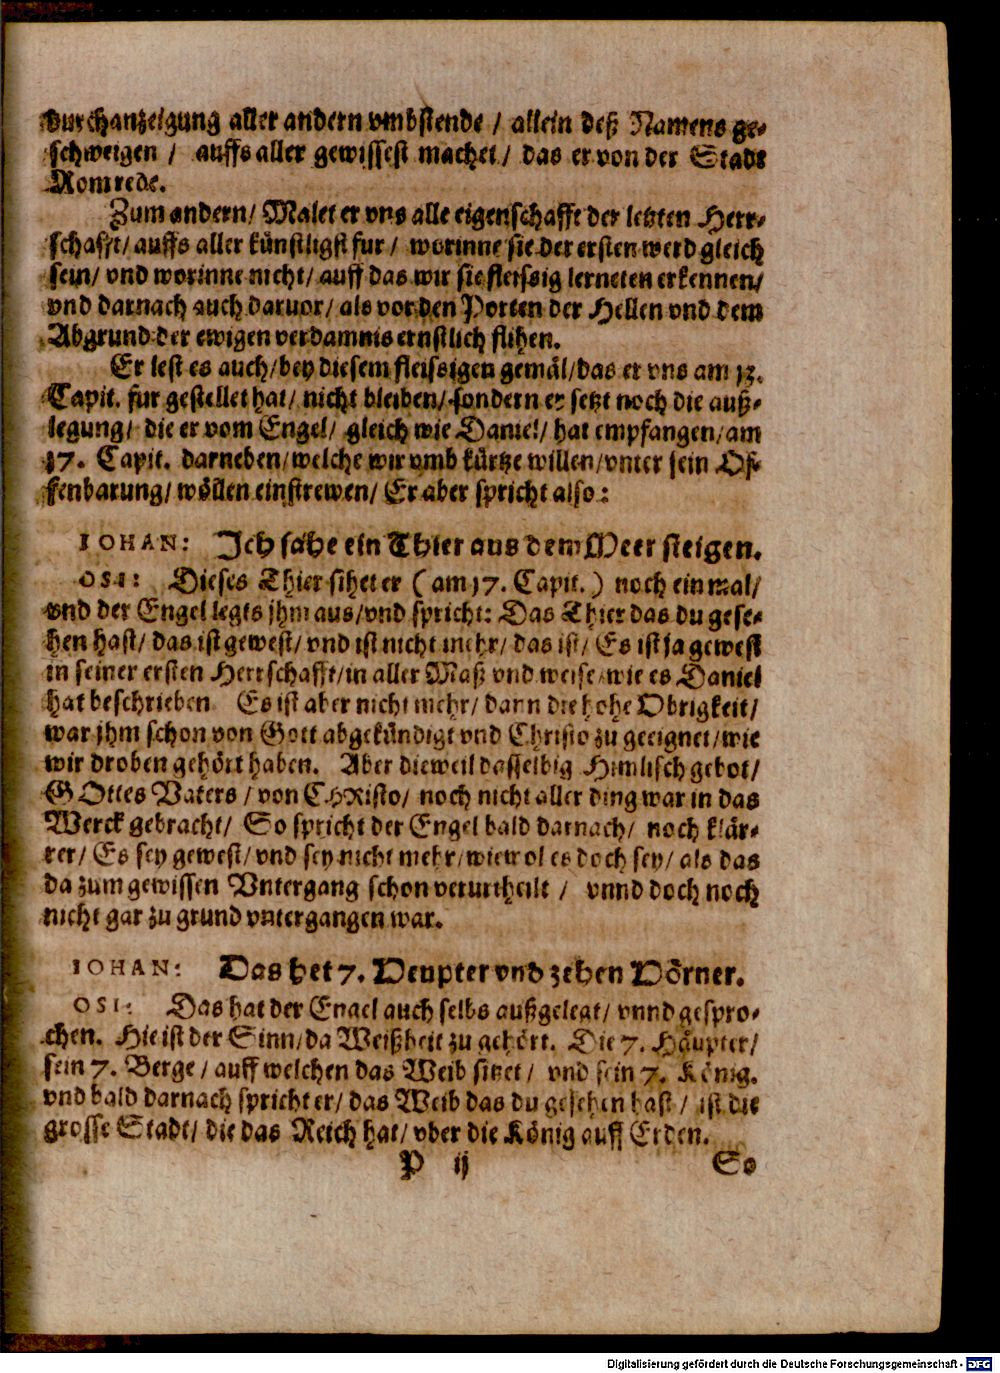 durchanzeigung aller andern vmbstende / allein deß Namens ge-
schweigen / auffs aller gewissest machet / das er von der Stadt
Rom rede.
Zum andern / Malet er vns alle eigenschafft der letzten Herr-
schafft / auffs aller künstligst fur / worinne sie der ersten werd gleich
sein / vnd worinne nicht / auff das wir sie fleissig lerneten erkennen /
vnd darnach auch daruor / als vor den Porten der Hellen vnd dem
Abgrund der ewigen verdamnis ernstlich flihen.
Er lest es auch / bey diesem fleissigen gemäl / das er vns am 13.
Capit. fur gestellet hat / nicht bleiben / sondern er setzt noch die auß-
legung / die er vom Engel / gleich wie Daniel / hat empfangen / am
17. Capit. darneben / welche wir vmb kürtze willen / vnter sein Of-
fenbarung / wöllen einstrewen / Er aber spricht also :
IOHAN: Ich sahe ein Thier aus dem Meer steigen.
OSI: Dieses Thier sihet er ( am 17. Capit. ) noch ein mal /
vnd der Engel legts jhm aus / vnd spricht: Das Thier das du gese-
hen hast / das ist gewest / vnd ist nicht mehr / das ist / Es ist ja gewest
in seiner ersten Herrschafft / in aller Maß vnd weise / wie es Daniel
hat beschrieben Es ist aber nicht mehr / dann die hohe Obrigkeit /
war jhm schon von Gott abgekündigt vnd Christo zu geeignet / wie
wir droben gehört haben. Aber dieweil dasselbig Himlisch gebot /
GOttes Vaters / von CHRisto / noch nicht aller ding war in das
Werck gebracht / So spricht der Engel bald darnach / noch klär-
rer / Es sey gewest / vnd sey nicht mehr / wiewol es doch sey / als das
da zum gewissen Vntergang schon verurtheilt / vnnd doch noch
nicht gar zu grund vntergangen war.
IOHAN: Das het 7. Heupter vnd zehen Hörner.
OSI: Das hat der Engel auch selbs außgelegt / vnnd gespro-
chen. Hie ist der Sinn / da Weißheit zu gehört. Die 7. Häupter /
sein 7. Berge / auff welchen das Weib sitzet / vnd sein 7. König.
vnd bald darnach spricht er / das Weib das du gesehen hast / ist die
grosse Stadt / die das Reich hat / vber die König auff Erden.
P ij So
Digitalisierung gefördert durch die Deutsche Forschungsgemeinschaft - DFG